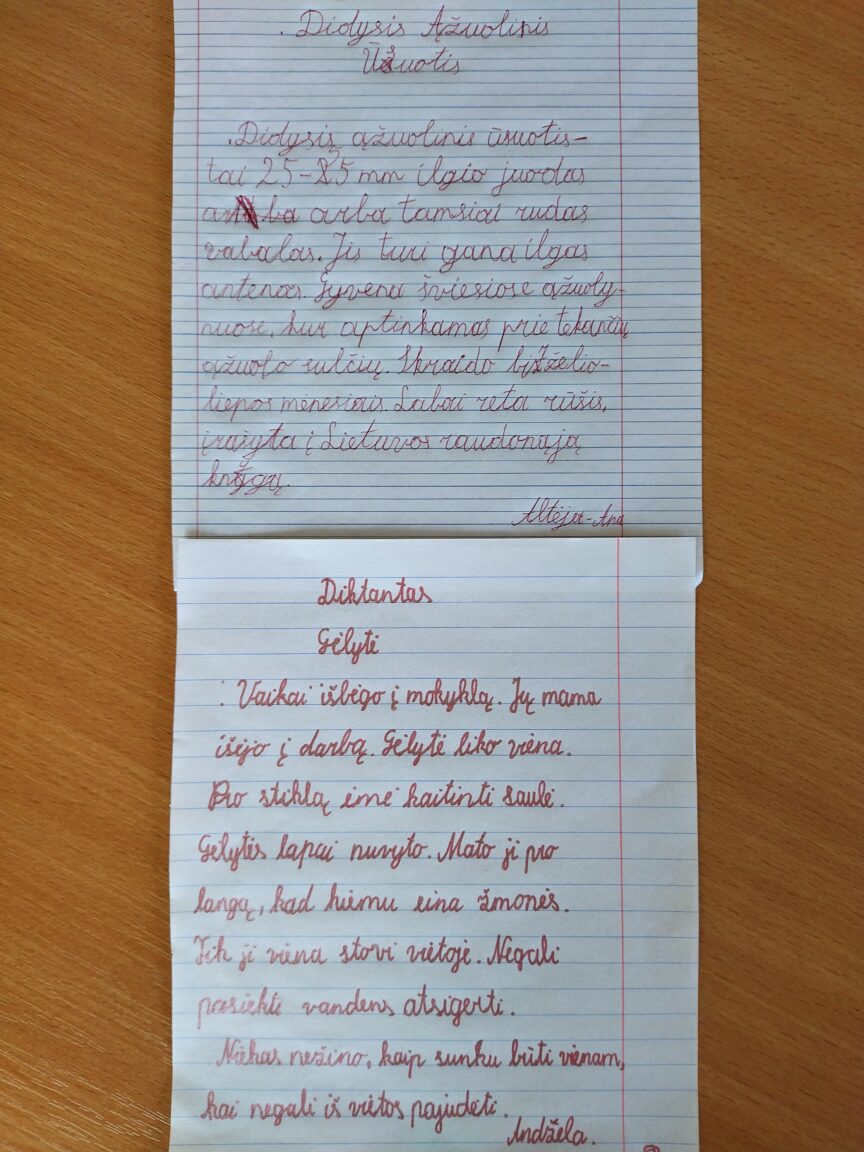 Didysis Ąžuolinis
Ūsuotis
Didysis ąžuolinis ūsuotis-
tai 25-85 mm ilgio juodas
ba arba tamsiai rudas
vabalas. Jis turi gana ilgas
antenas. Gyvena šviesiose ąžuoly-
nuose, kur aptinkamas prie tekančių
ąžuolo sulčių. Skraido birželio-
liepos mėnesiais. Labai reta rūšis,
įrašyta į Lietuvos raudonąją
knygą.
Diktantas
Gėlytė
Vaikai išbėgo į mokyklą. Jų mama
išėjo į darbą. Gėlytė liko viena.
Pro stiklą ėmė kaitinti saulė.
Gėlytės lapai nuvyto. Mato ji pro
langą, kad kiemu eina žmonės.
Tik ji viena stovi vietoje. Negali
pasiekti vandens atsigerti.
Niekas nežino, kaip sunku būti vienam,
kai negali iš vietos pajudėti.
Andžela.